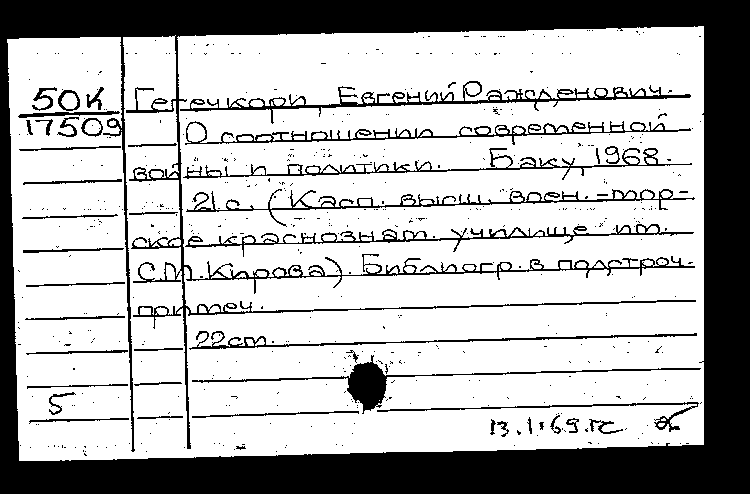 50К Гегечкори, Евгений Ражденович.
17509 О соотношении современной
войны и политики. Баку, 1968.
21 с. (Касп. высш. воен.-мор-
ское краснознам. училище им.
С.М. Кирова). Библиогр. в подстроч.
примеч.
22 см.
5